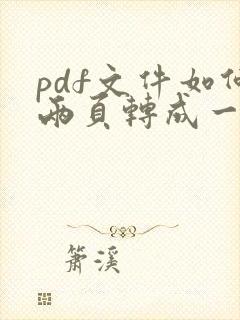 pdf文件如何
兩頁轉成一
簫溪